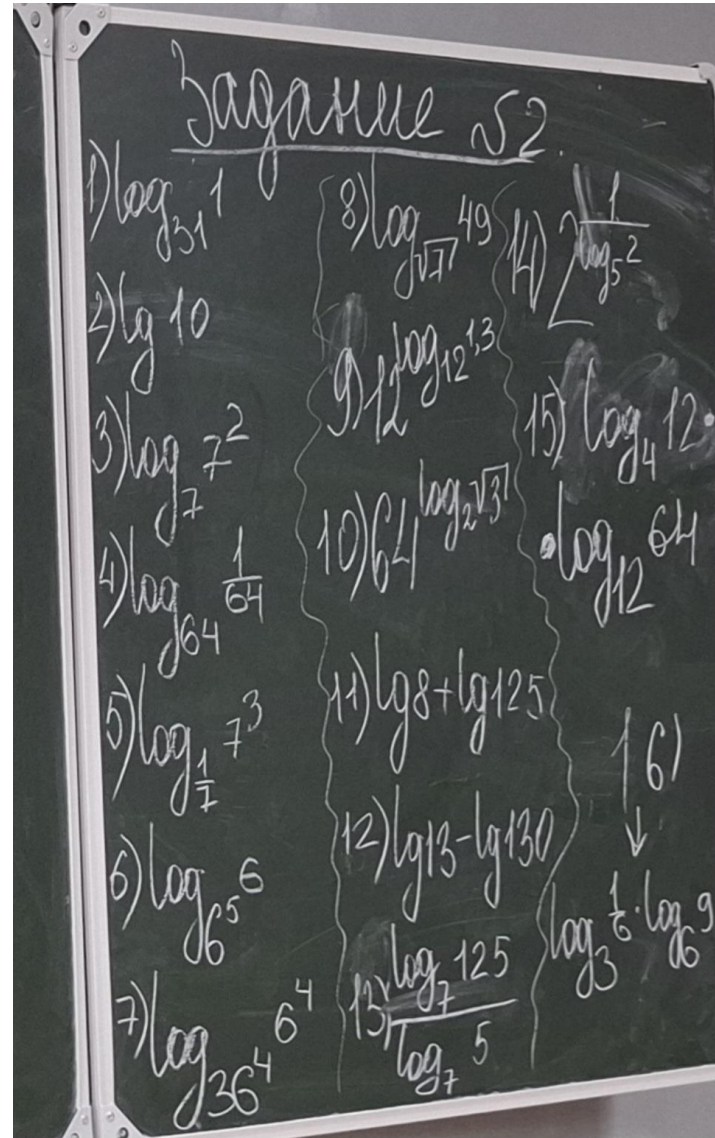 Задание №2.
1) log₃₁ 1
2) lg 10
3) log₇ 7²
4) log₆₄ 1/64
5) log_(1/7) 7³
6) log_(6⁵) 6
7) log_(36⁴) 6⁴
8) log_(√7) 49
9) 12^(log₁₂ 1,3)
10) 64^(log₂ √3)
11) lg8+lg125
12) lg13-lg130
13) log₇ 125 / log₇ 5
14) 2^(1/log₅ 2)
15) log₄ 12 ·
· log₁₂ 64
16)
↓
log₃ 1/6 · log₆ 9